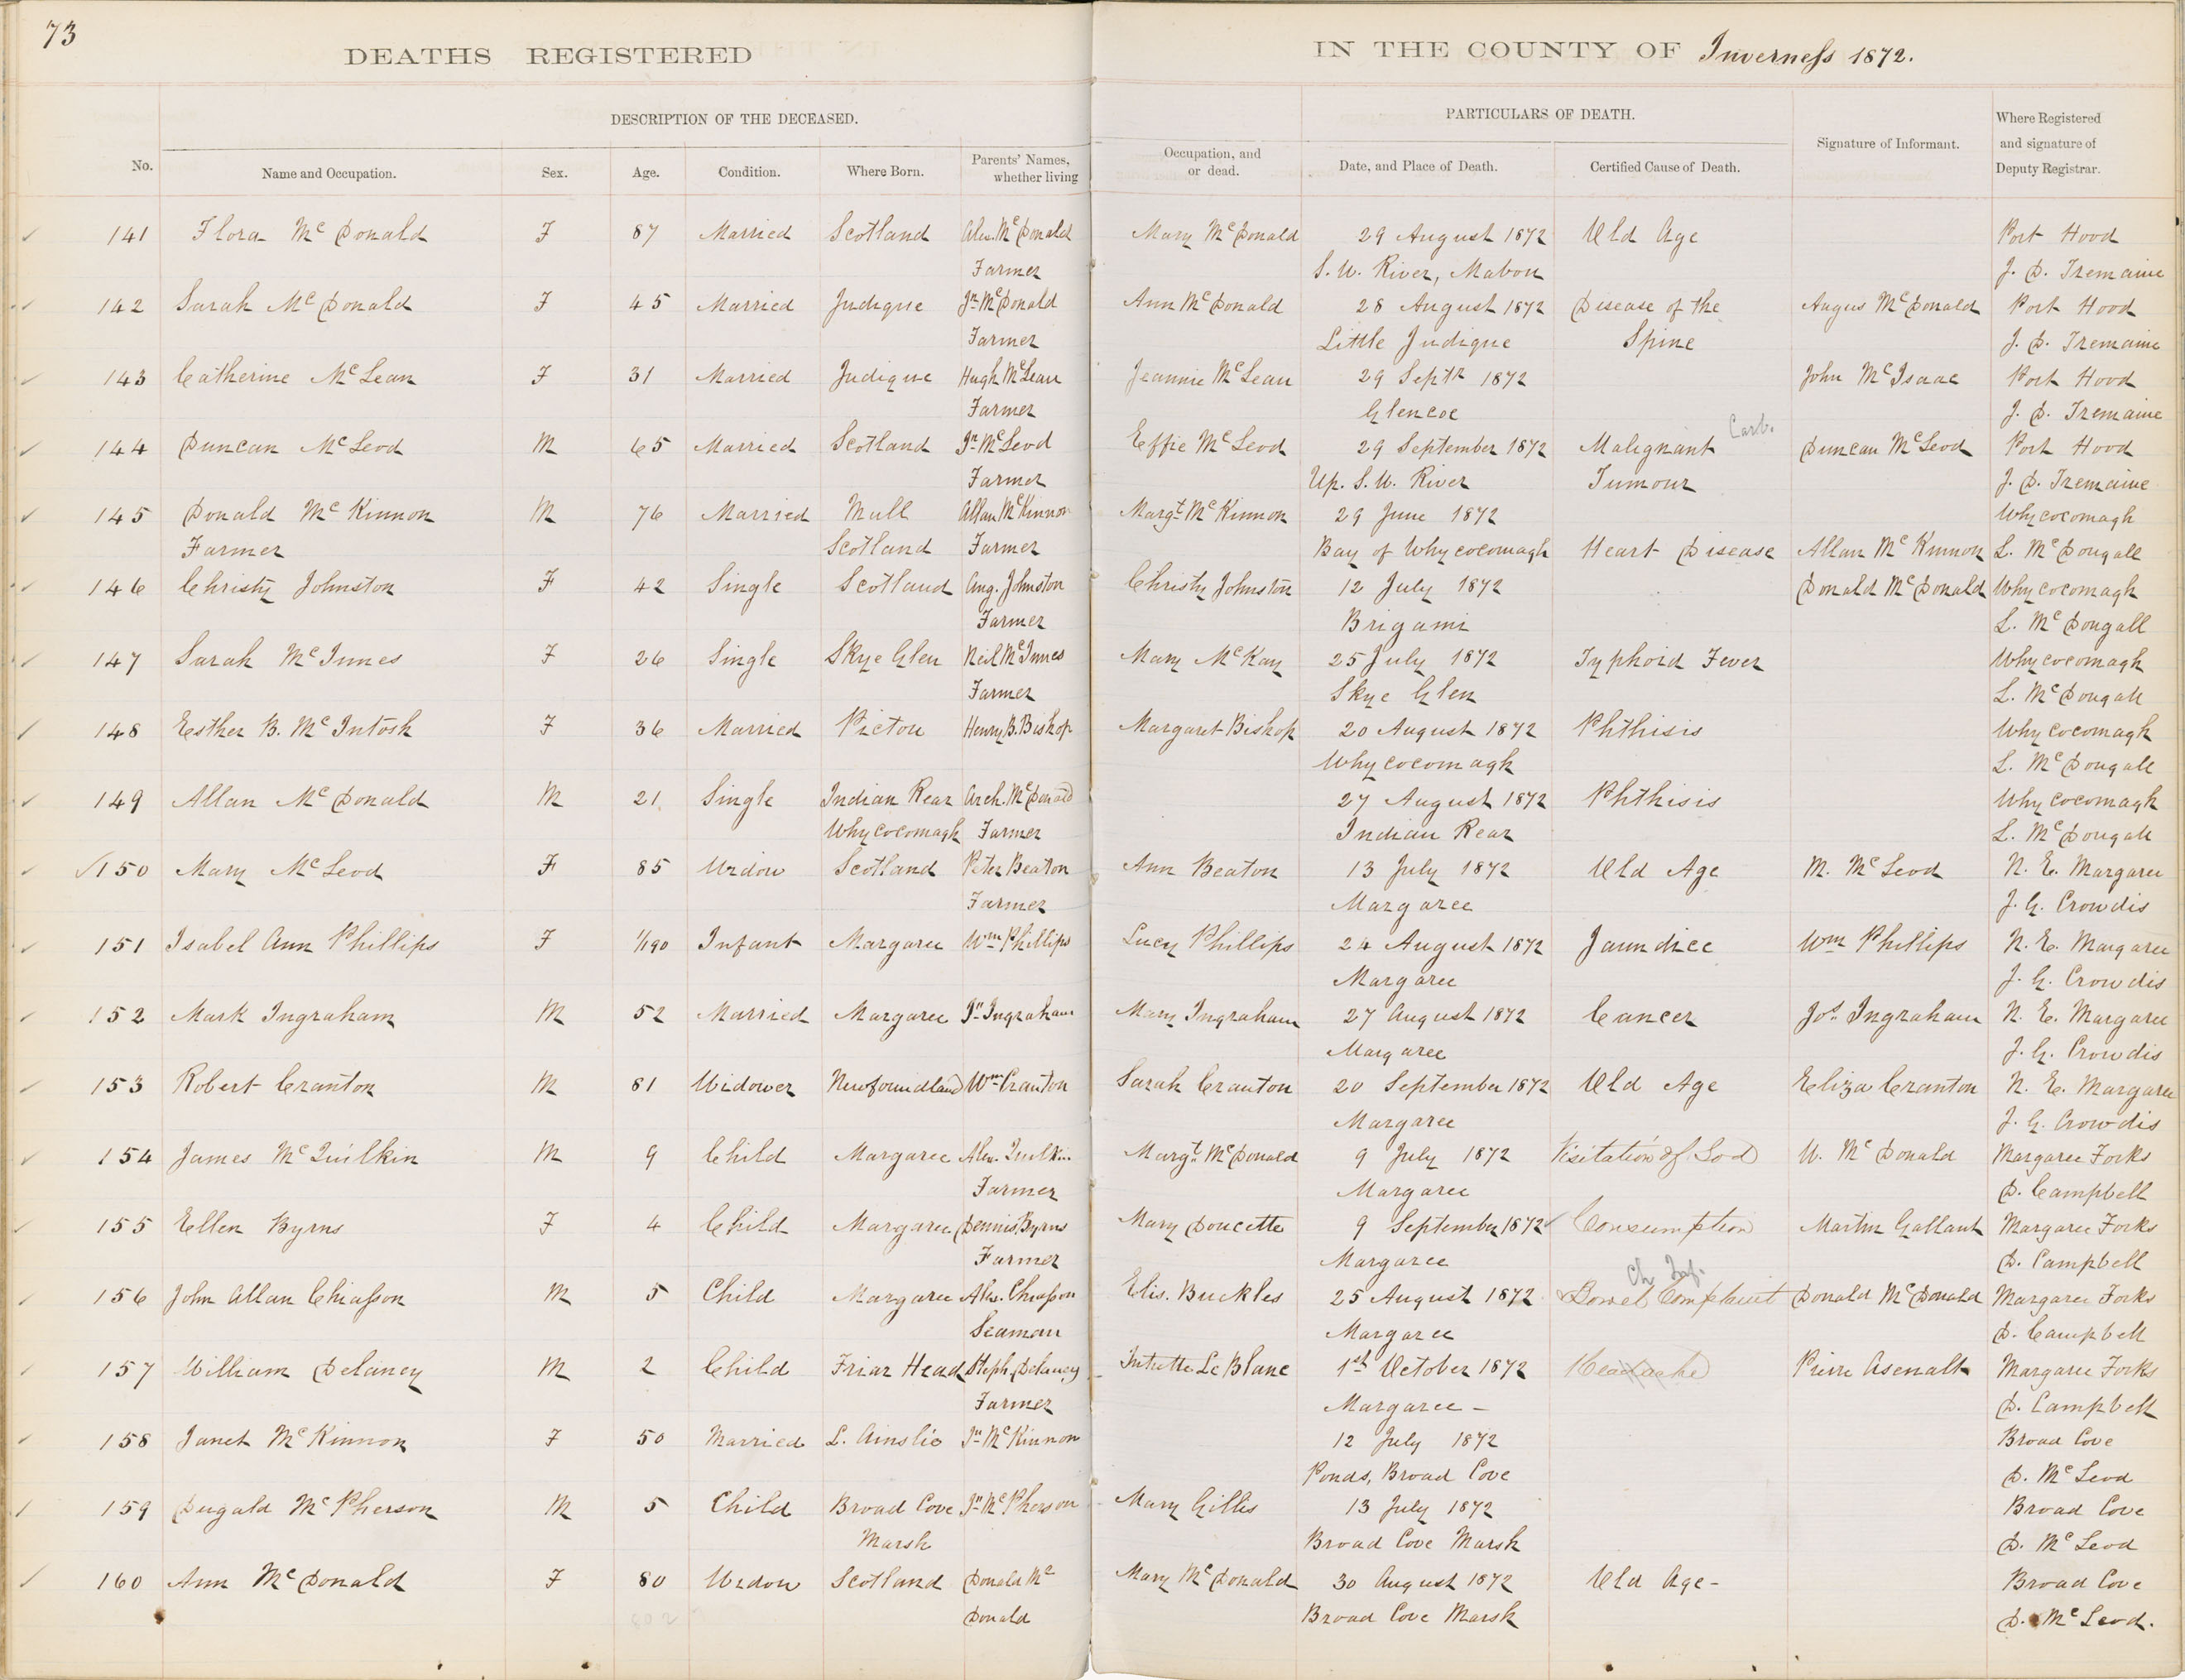 73
DEATHS REGISTERED IN THE COUNTY OF Inverness 1872.
DESCRIPTION OF THE DECEASED. PARTICULARS OF DEATH.
No. Name and Occupation. Sex. Age. Condition. Where Born. Parents' Names, whether living Occupation, and or dead. Date, and Place of Death. Certified Cause of Death. Signature of Informant. Where Registered and signature of Deputy Registrar.
141 Flora McDonald F 87 Married Scotland Alex. McDonald Mary McDonald 29 August 1872 Old Age Port Hood
Farmer S. W. River, Mabou J. D. Tremaine
142 Sarah McDonald F 45 Married Judique Jn. McDonald Ann McDonald 28 August 1872 Disease of the Angus McDonald Port Hood
Farmer Little Judique Spine J. D. Tremaine
143 Catherine McLean F 31 Married Judique Hugh McLean Jeannie McLean 29 Septr 1872 John McIsaac Port Hood
Farmer Glencoe J. D. Tremaine
Carb.
144 Duncan McLeod M 65 Married Scotland Jn. McLeod Effie McLeod 29 September 1872 Malignant Duncan McLeod Port Hood
Farmer Up. S. W. River Tumour J. D. Tremaine
145 Donald McKinnon M 76 Married Mull Allan McKinnon Margt. McKinnon 29 June 1872 Whycocomagh
Farmer Scotland Farmer Bay of Whycocomagh Heart Disease Allan McKinnon L. McDougall
146 Christy Johnston F 42 Single Scotland Ang. Johnston Christy Johnston 12 July 1872 Donald McDonald Whycocomagh
Farmer Brigami L. McDougall
147 Sarah McInnes F 26 Single Skye Glen Neil McInnes Mary McKay 25 July 1872 Typhoid Fever Whycocomagh
Farmer Skye Glen L. McDougall
148 Esther B. McIntosh F 36 Married Pictou Henry B. Bishop Margaret Bishop 20 August 1872 Phthisis Whycocomagh
Whycocomagh L. McDougall
149 Allan McDonald M 21 Single Indian Rear Arch. McDonald 27 August 1872 Phthisis Whycocomagh
Whycocomagh Farmer Indian Rear L. McDougall
150 Mary McLeod F 85 Widow Scotland Peter Beaton Ann Beaton 13 July 1872 Old Age M. McLeod N. E. Margaree
Farmer Margaree J. G. Crowdis
151 Isabel Ann Phillips F 1/190 Infant Margaree Wm Phillips Lucy Phillips 24 August 1872 Jaundice Wm Phillips N. E. Margaree
Margaree J. G. Crowdis
152 Mark Ingraham M 52 Married Margaree Jn. Ingraham Mary Ingraham 27 August 1872 Cancer Jos. Ingraham N. E. Margaree
Margaree J. G. Crowdis
153 Robert Cranton M 81 Widower Newfoundland Wm Cranton Sarah Cranton 20 September 1872 Old Age Eliza Cranton N. E. Margaree
Margaree J. G. Crowdis
154 James McQuilkin M 9 Child Margaree Alex. Quilkin Margt. McDonald 9 July 1872 Visitation of God W. McDonald Margaree Forks
Farmer Margaree D. Campbell
155 Ellen Byrns F 4 Child Margaree Dennis Byrns Mary Doucette 9 September 1872 Consumption Martin Gallant Margaree Forks
Farmer Margaree D. Campbell
Ch Inf.
156 John Allan Chiasson M 5 Child Margaree Alex. Chiasson Elis. Buckles 25 August 1872 Bowel Complaint Donald McDonald Margaree Forks
Seaman Margaree D. Campbell
157 William Delaney M 2 Child Friar Head Steph. Delaney LeBlanc 1st October 1872 Headache Pierre Asenalt Margaree Forks
Farmer Margaree - D. Campbell
158 Janet McKinnon F 50 Married L. Ainslie Jn. McKinnon 12 July 1872 Broad Cove
Ponds, Broad Cove D. McLeod
159 Dugald McPherson M 5 Child Broad Cove Jn. McPherson Mary Gillis 13 July 1872 Broad Cove
Marsh Broad Cove Marsh D. McLeod
160 Ann McDonald F 80 Widow Scotland Donald Mc Mary McDonald 30 August 1872 Old Age - Broad Cove
802 Donald Broad Cove Marsh D. McLeod.